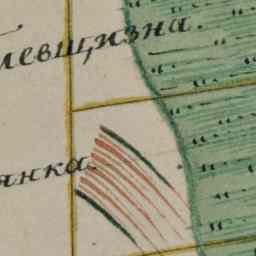 левщизна
анка